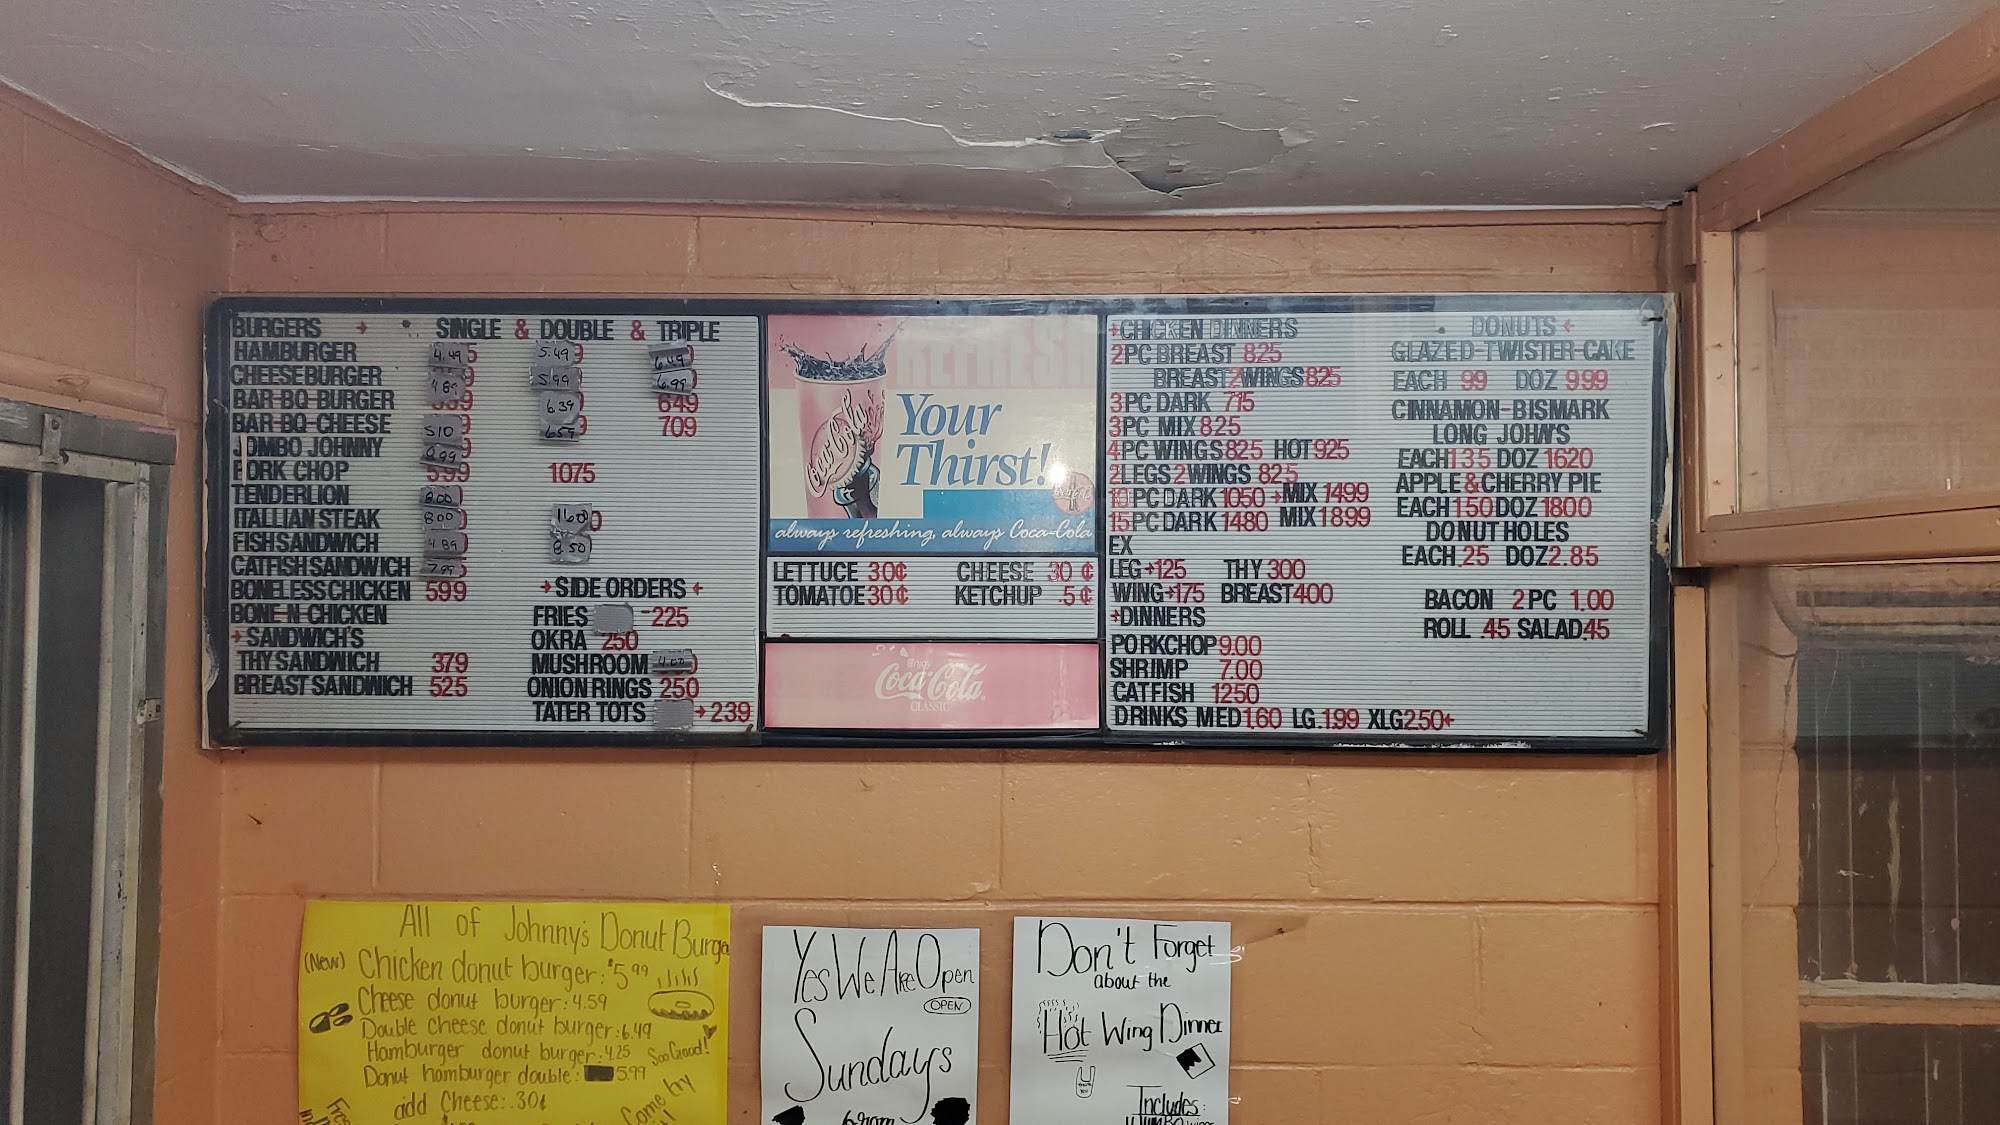 BURGERS → SINGLE & DOUBLE & TRIPLE
HAMBURGER 4.49 5.49 6.49
CHEESEBURGER 4.89 5.99 6.99
BAR-BQ-BURGER 6.39 649
BAR-BQ-CHEESE 510 659 709
JOMBO JOHNNY
PORK CHOP 599 1075
TENDERLION 8.00
ITALLIAN STEAK 8.00 16.00
FISH SANDWICH 4.89 8.50
CATFISH SANDWICH 7.99
BONELESS CHICKEN 599
BONE-N-CHICKEN
→ SANDWICH'S
THY SANDWICH 379
BREAST SANDWICH 525
→ SIDE ORDERS ←
FRIES -225
OKRA 250
MUSHROOM 4.00
ONION RINGS 250
TATER TOTS → 239
REFRESH
Your
Thirst!
Coca-Cola
always refreshing, always Coca-Cola
LETTUCE 30¢ CHEESE 30 ¢
TOMATOE 30¢ KETCHUP .5¢
Enjoy
Coca-Cola
CLASSIC
→CHICKEN DINNERS
2PC BREAST 825
BREAST 2 WINGS 825
3PC DARK 715
3PC MIX 825
4PC WINGS 825 HOT 925
2LEGS 2WINGS 825
10PC DARK 1050 →MIX 1499
15PC DARK 1480 MIX 1899
EX
LEG→125 THY 300
WING→175 BREAST 400
→DINNERS
PORKCHOP 9.00
SHRIMP 7.00
CATFISH 1250
DRINKS MED 1.60 LG. 1.99 XLG 2.50←
DONUTS ←
GLAZED-TWISTER-CAKE
EACH 99 DOZ 999
CINNAMON-BISMARK
LONG JOHN'S
EACH 135 DOZ 1620
APPLE & CHERRY PIE
EACH 150 DOZ 1800
DONUT HOLES
EACH .25 DOZ 2.85
BACON 2PC 1.00
ROLL .45 SALAD .45
All of Johnny's Donut Burga
(New) Chicken donut burger: $5.99
Cheese donut burger: 4.59
Double cheese donut burger: 6.49
Hamburger donut burger: 4.25
Soo Good!
Donut hamburger double: 5.99
add Cheese: .30¢
Come try
Yes We Are Open
OPEN
Sundays
Don't Forget
about the
Hot Wing Dinner
Includes: